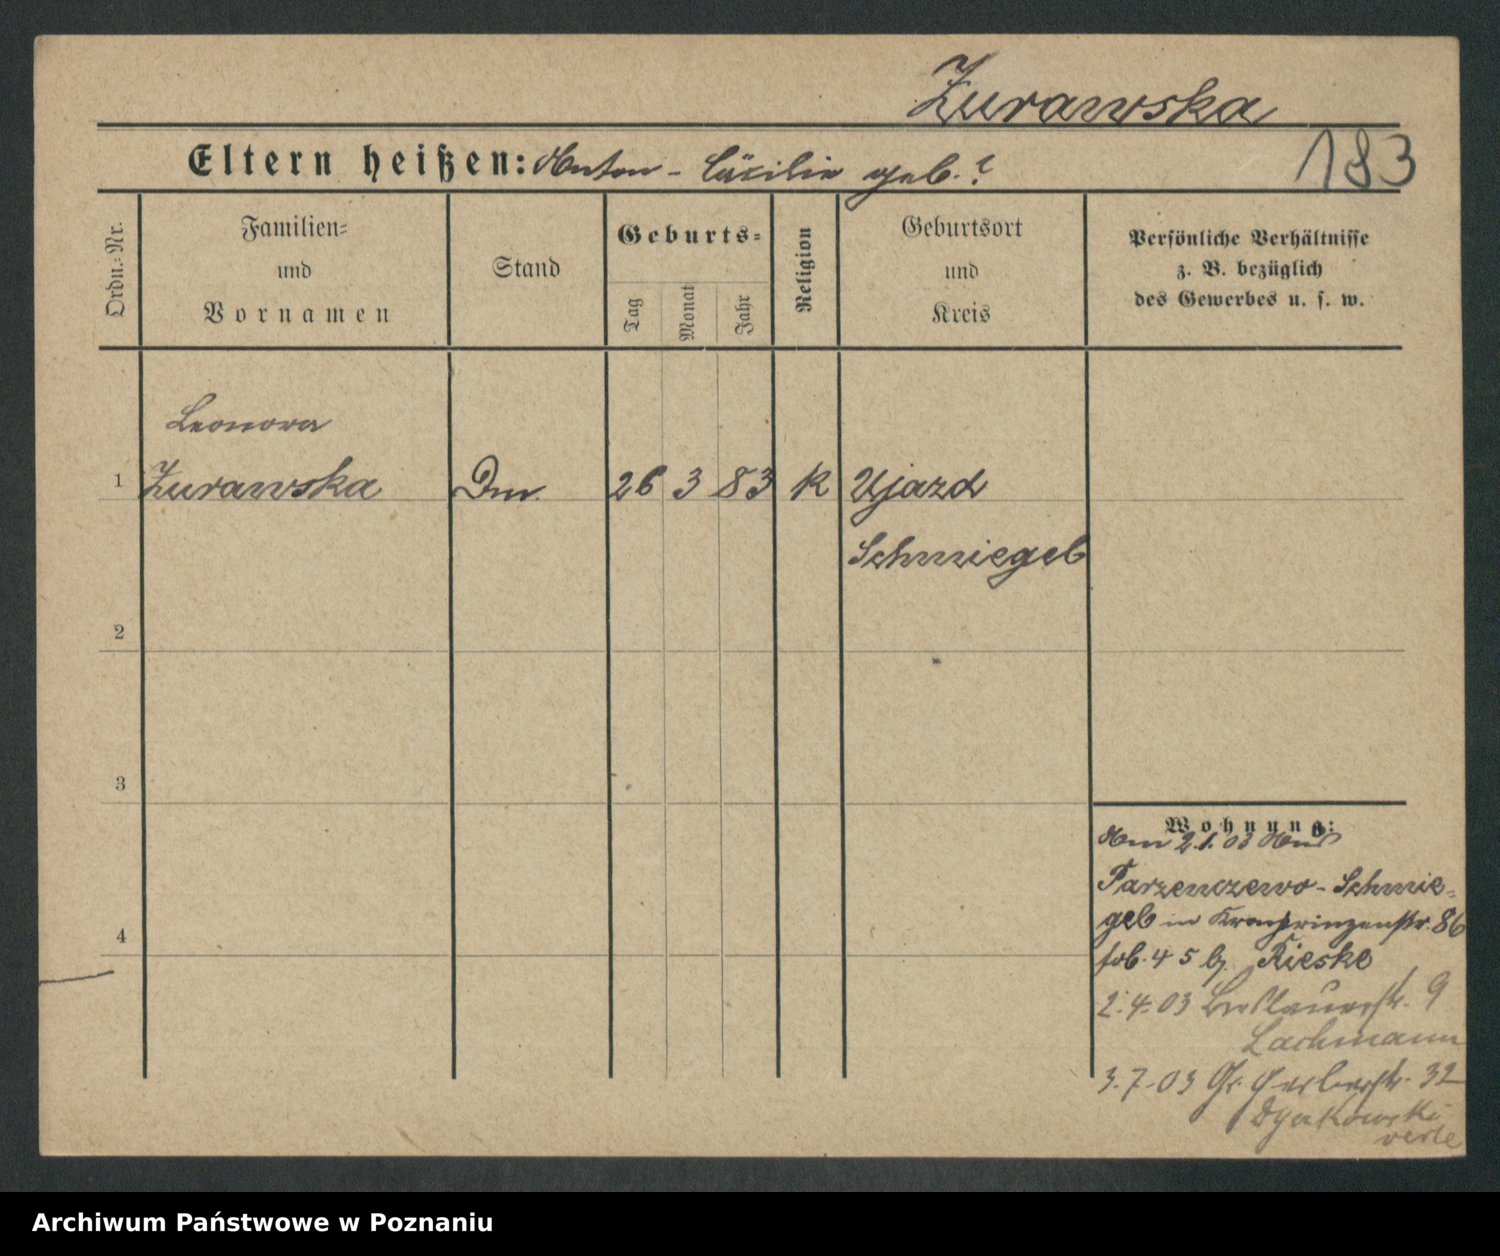 Zurawska
Eltern heißen: Anton - Cäcilie geb. ?
183
Ordn.-Nr.
Familien-
und
Vornamen
Stand
Geburts-
Tag
Monat
Jahr
Religion
Geburtsort
und
Kreis
Persönliche Verhältnisse
z. B. bezüglich
des Gewerbes u. s. w.
Leonora
1 Zurawska Dm. 26 3 83 K Ujazd
Schmiegel
2
3
Wohnung:
Am 2.1.03 aus
Parzenczewo - Schmie-
gel in Kronprinzenstr. 86
4
Rieske
2.4.03 Breslauerstr. 9
Lachmann
3.7.03 Gr. Gerberstr. 32